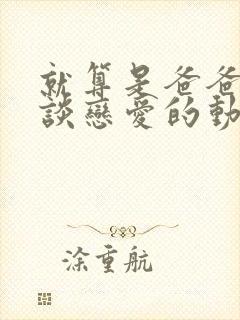 就算是爸爸
談戀愛的動
涂重航